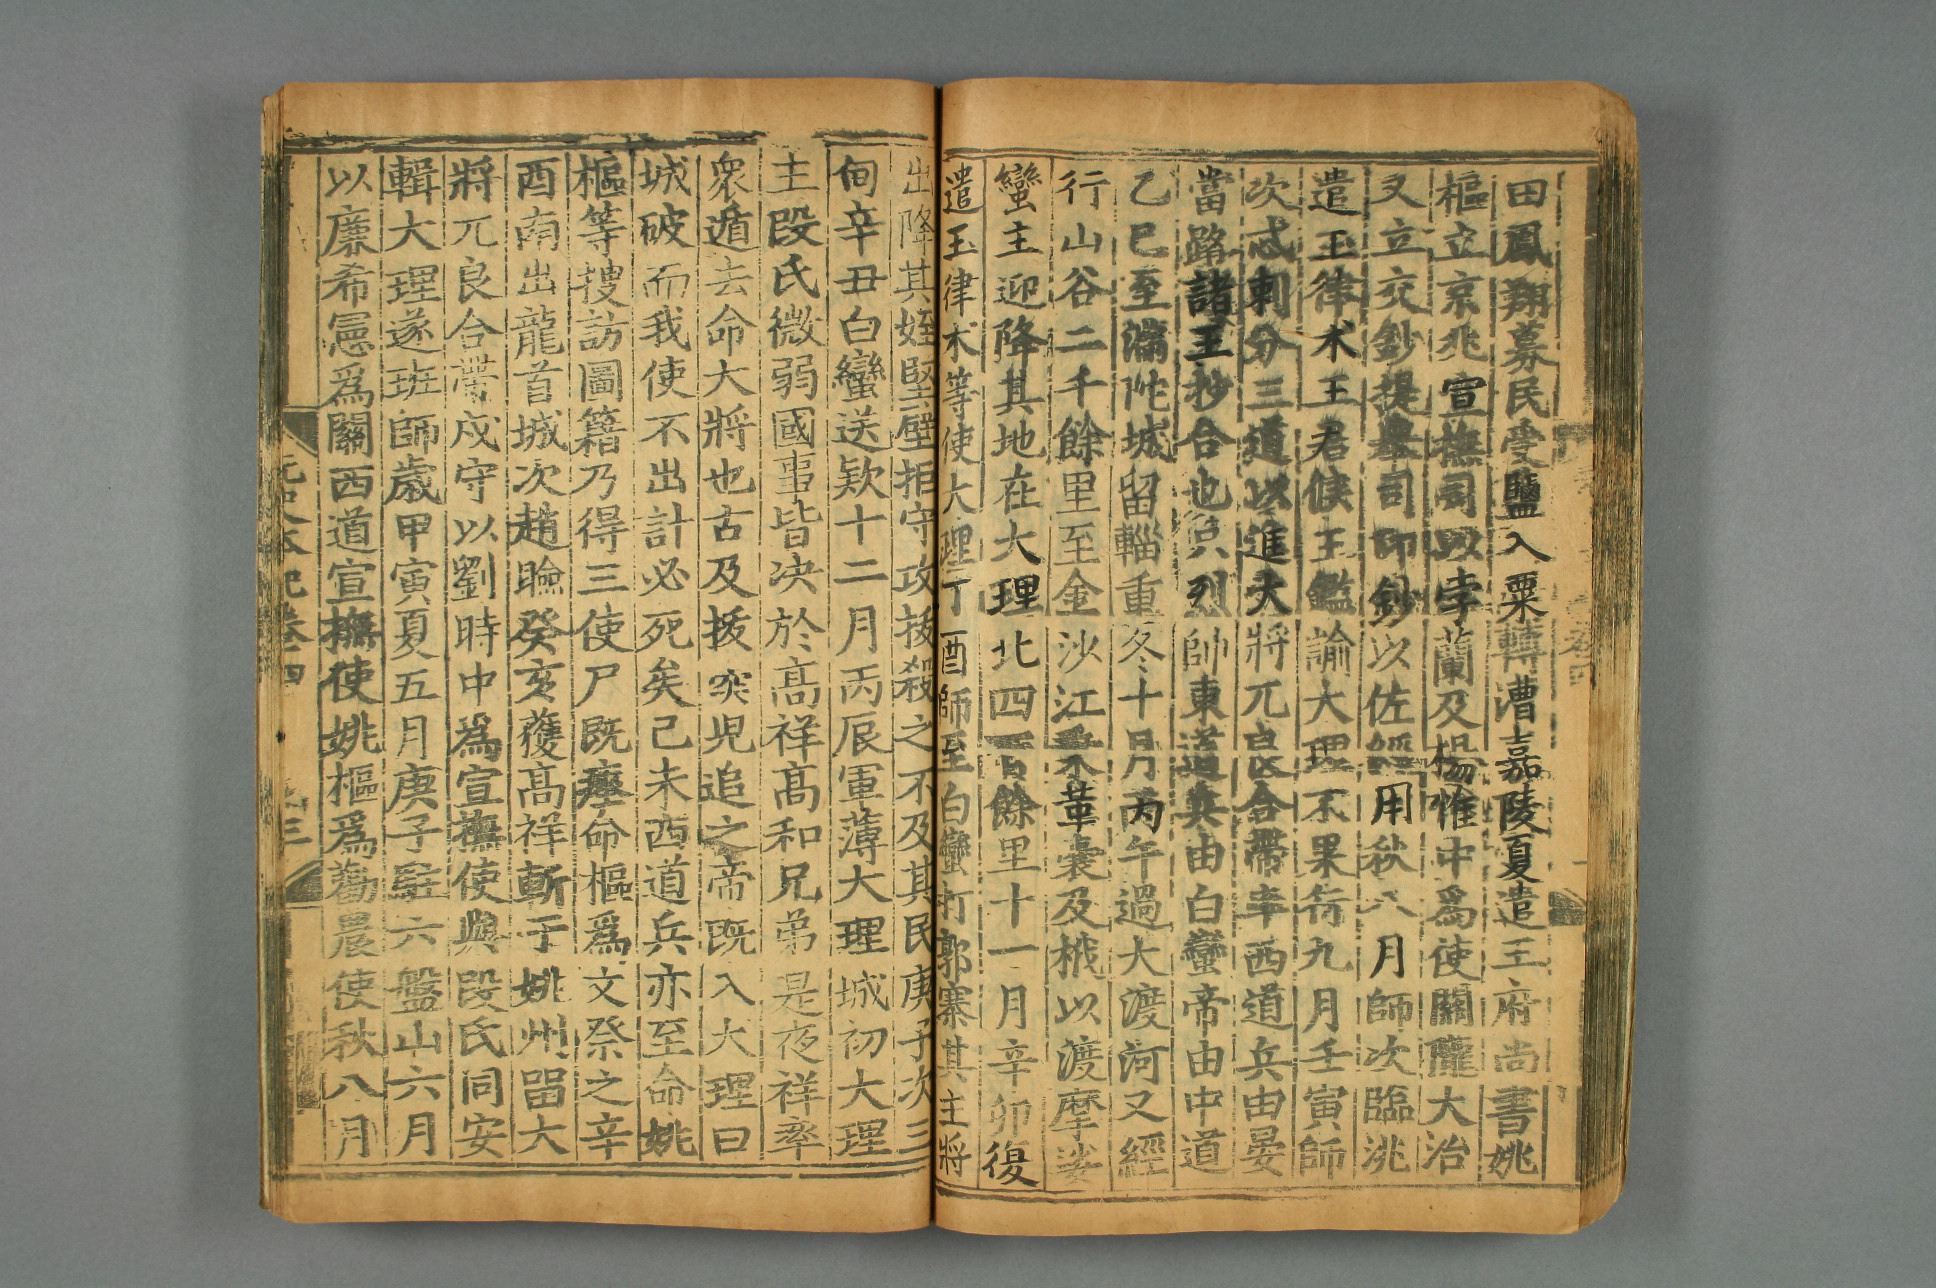 田鳳翔募民受鹽入粟轉漕嘉陵夏遣王府尚書姚
樞立京兆宣撫司以孛蘭及楊惟中爲使關隴大治
又立交鈔提舉司印鈔以佐經用秋八月師次臨洮
遣玉律术王君候王鑑諭大理不果行九月壬寅師
次忒剌分三道以進大將兀良合帶率西道兵由晏
當路諸王抄合也只烈帥東道兵由白蠻帝由中道
乙巳至滿陀城留輜重冬十月丙午過大渡河又經
行山谷二千餘里至金沙江乘革囊及栰以渡摩娑
蠻主迎降其地在大理北四百餘里十一月辛卯復
遣玉律术等使大理丁酉師至白蠻打郭寨其主將
出降其姪堅壁拒守攻拔殺之不及其民庚子次三
甸辛丑白蠻送款十二月丙辰軍薄大理城初大理
主段氏微弱國事皆决於高祥高和兄弟是夜祥率
衆遁去命大將也古及拔突児追之帝既入大理曰
城破而我使不出計必死矣己未西道兵亦至命姚
樞等搜訪圖籍乃得三使尸既瘞命樞爲文祭之辛
酉南出龍首城次趙瞼癸亥獲高祥斬于姚州留大
將兀良合帶戍守以劉時中爲宣撫使與段氏同安
輯大理遂班師歲甲寅夏五月庚子駐六盤山六月
以廉希憲爲關西道宣撫使姚樞爲勸農使秋八月
元史本紀卷四
三